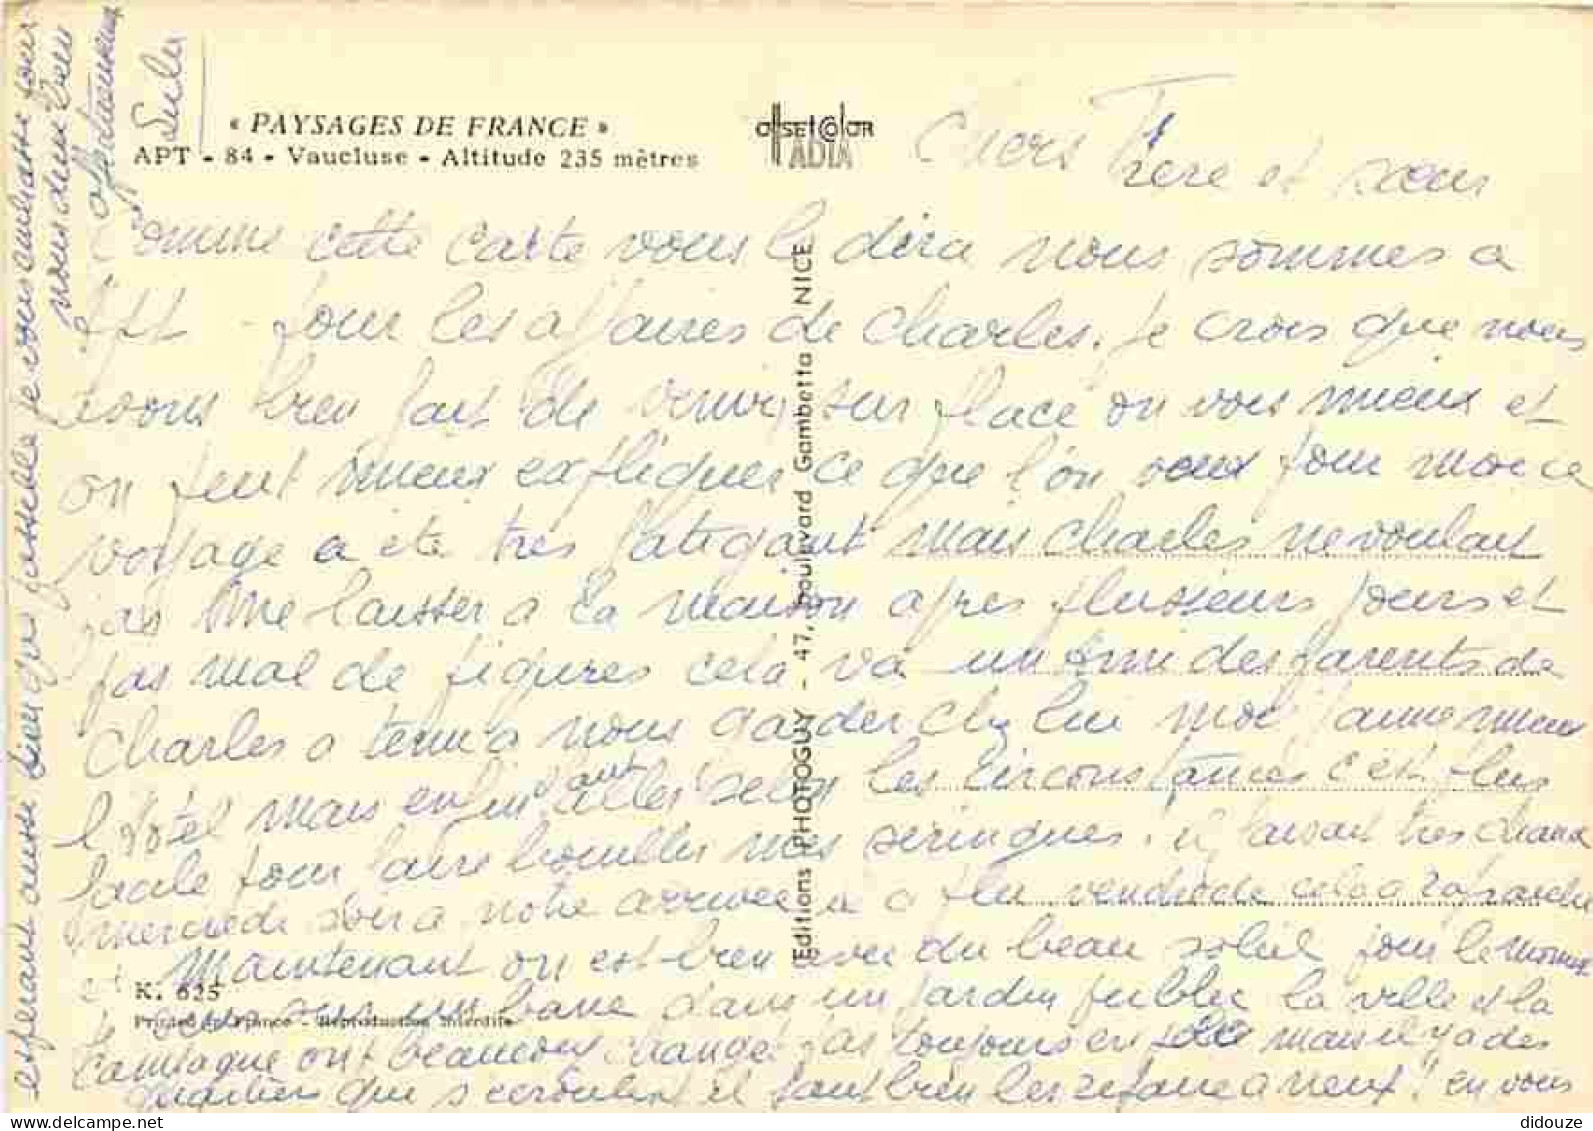 « PAYSAGES DE FRANCE »
APT - 84 - Vaucluse - Altitude 235 mètres
OffsetColor
IADIA
Editions PHOTOGUY - 47, boulevard Gambetta NICE
K. 625
Printed in France - Reproduction interdite
Chers Frere et soeur
Comme cette carte vous le dira nous sommes a
Apt pour les affaires de Charles. Je crois que nous
avons bien fait de venir, sur place on vois mieux et
on peut mieux expliquer ce que l'on veux pour moi ce
voyage a été tres fatigant mais Charles ne voulait
pas me laisser a la maison apres plusieurs jours et
pas mal de figures cela va un ami des parents de
Charles a tenu a nous garder chez lui moi j'aime mieux
l'Hôtel mais enfin aller selon les circonstances c'est plus
facile pour faire bouillir mes seringues. il faisait tres chaud
mercredi soir a notre arrivée il a plu vendredi cela a rafraichi
et Maintenant on est bien avec du beau soleil pour le moment
je sur un banc dans un jardin public la ville et la
Campagne ont beaucoup changer pas toujours en mais il y a des
quartiers que s'ecroulent il faut bien les refaire a neuf! en vous
esperant aussi bien que possible je vous embrasse pour
nous deux bien
affectueusement
Lulu
didouze